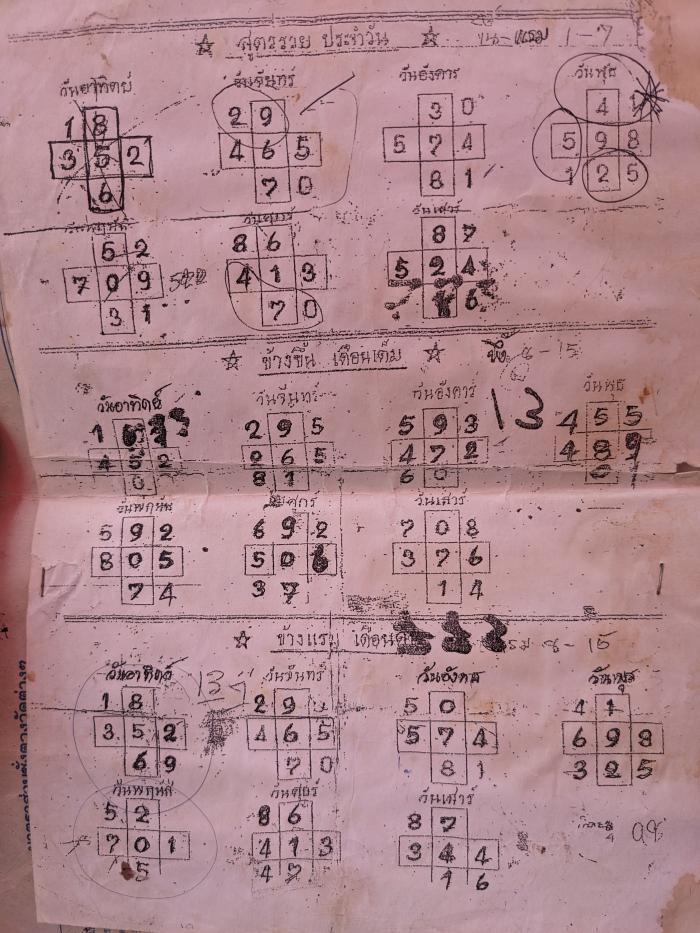 ☆ สูตรรวย ประจำวัน ☆ ขึ้น-แรม 1-7
วันอาทิตย์ วันจันทร์ วันอังคาร วันพุธ
1 8 2 9 3 0 4 1
3 5 2 4 6 5 5 7 4 5 9 8
6 7 0 8 1 1 2 5
วันพฤหัส วันศุกร์ วันเสาร์
5 2 8 6 8 7
7 0 9 4 1 3 5 2 4
3 1 7 0 6
☆ ข้างขึ้น เดือนเต็ม ☆ 8-15
วันอาทิตย์ วันจันทร์ วันอังคาร 13 วันพุธ
1 2 9 5 5 9 3 4 5 5
4 5 2 2 6 5 4 7 2 4 8 9
0 8 1 6 0 0 1
วันพฤหัส ศุกร์ วันเสาร์
5 9 2 6 9 2 7 0 8
8 0 5 5 0 6 3 7 6
7 4 3 7 1 4
☆ ข้างแรม 8-15
วันอาทิตย์ 13 วันจันทร์ วันอังคาร วันพุธ
1 8 2 9 5 0 4 1
3 5 2 4 6 5 5 7 4 6 9 8
6 9 7 0 8 1 3 2 5
วันพฤหัส วันศุกร์ วันเสาร์
5 2 8 6 8 7
7 0 1 4 1 3 3 4 4
5 4 7 1 6